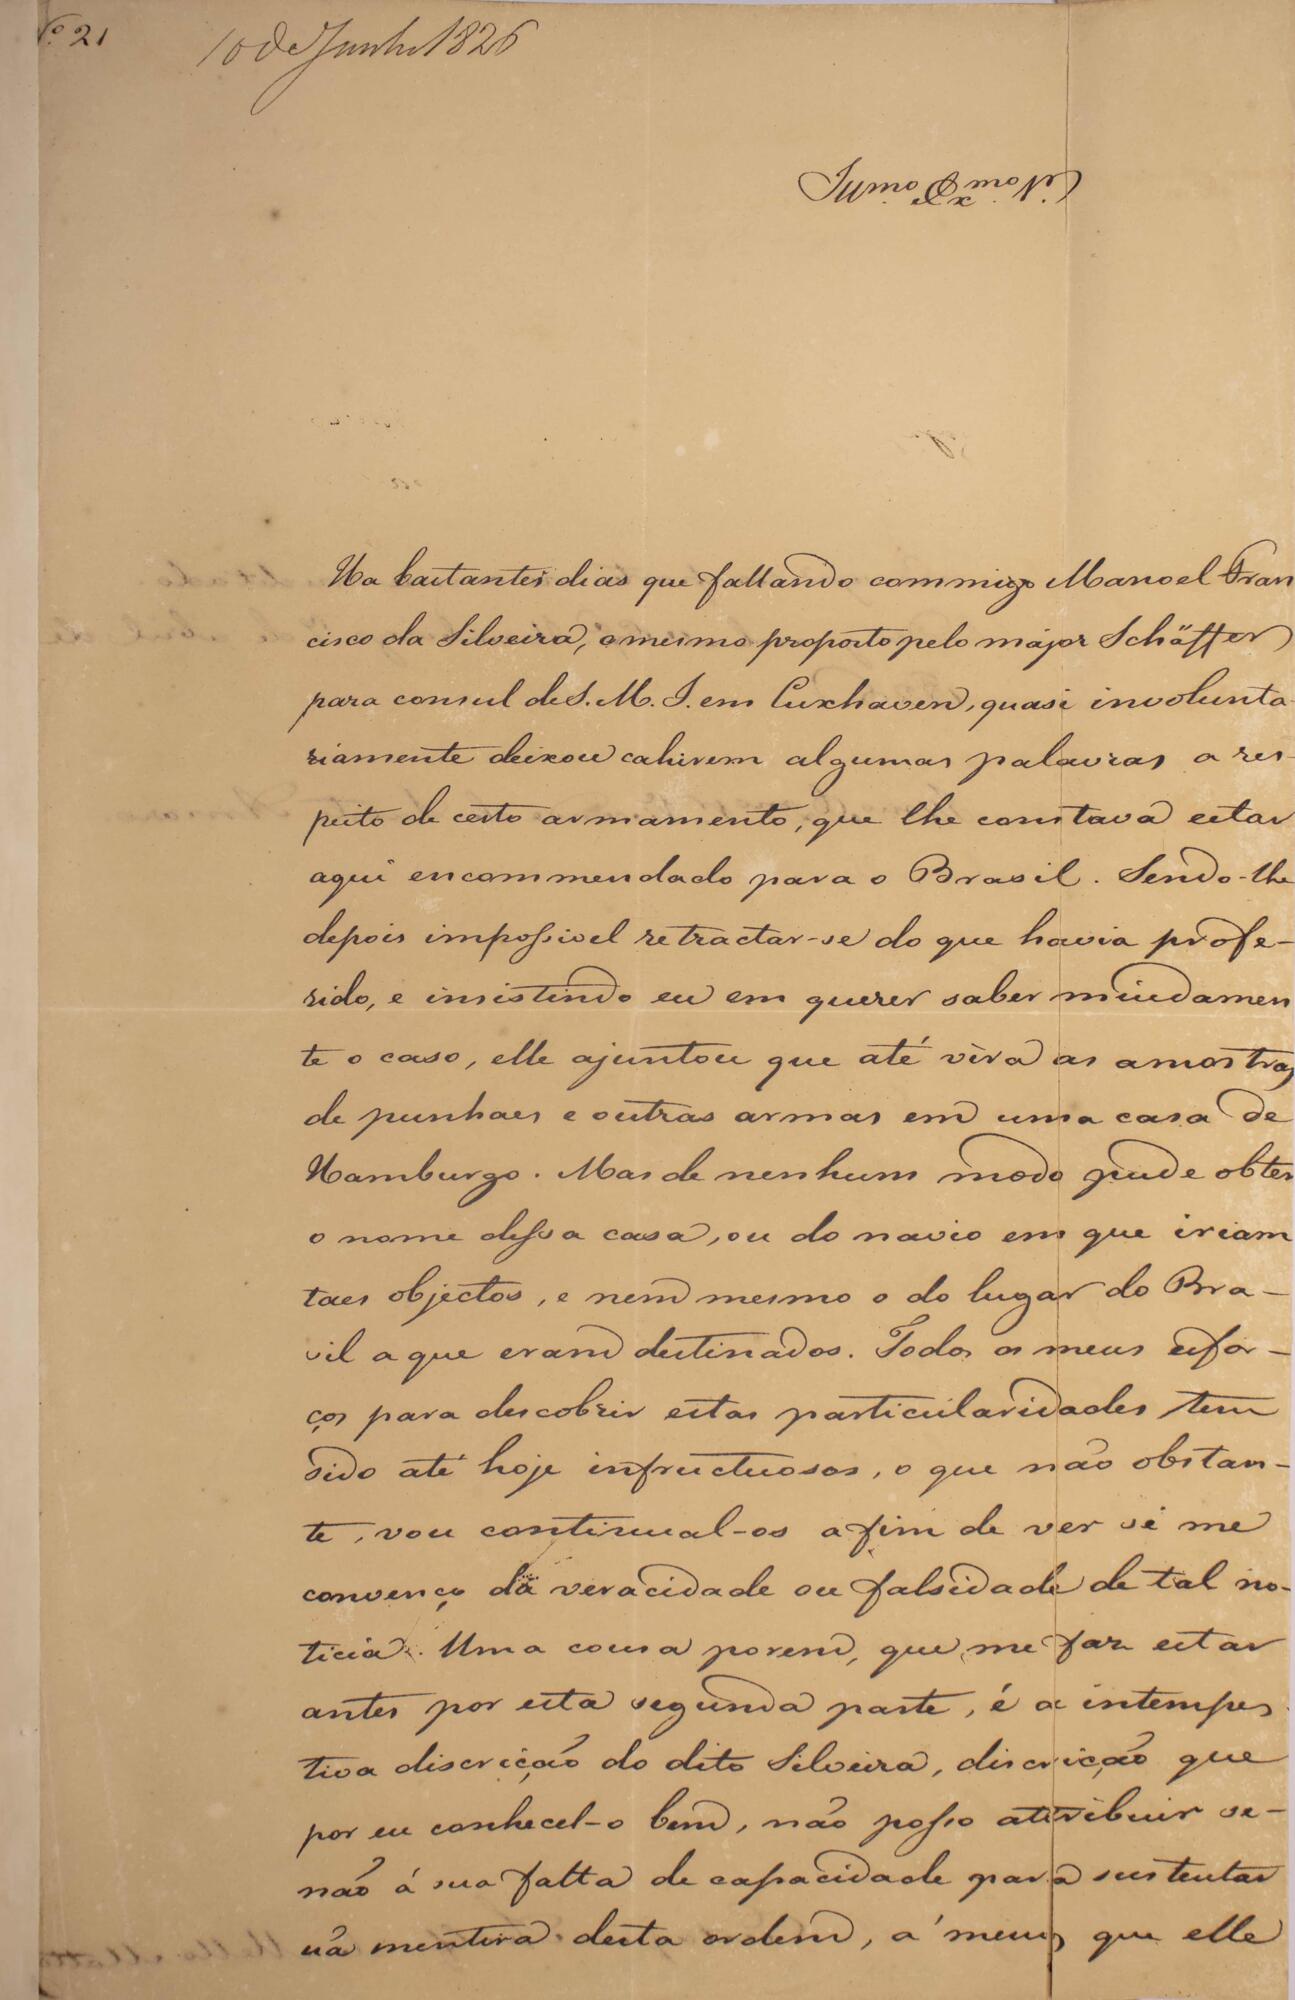 N.º 21
10 de Junho 1826
Illmo Exmo
Ha bastantes dias que fallando commigo Manoel Fran
cisco da Silveira, o mesmo proposto pelo major Schäffer
para consul de S. M. I. em Cuxhaven, quasi involunta
riamente deixou cahirem algumas palavras a res-
peito de certo armamento, que lhe constava estar
aqui encommendado para o Brasil. Sendo-lhe
depois impossivel retractar-se do que havia profe-
rido, e insistindo eu em querer saber miudamen
te o caso, elle ajuntou que até vira as amostras
de punhaes e outras armas em uma casa de
Hamburgo. Mas de nenhum modo pude obter
o nome dessa casa, ou do navio em que iriam
taes objectos, e nem mesmo o do lugar do Bra-
sil a que eram destinados. Todos os meus esfor-
ços para descobrir estas particularidades tem
sido até hoje infructuosos, o que não obstan-
te, vou continual-os a fim de ver se me
convenço da veracidade ou falsidade de tal no-
ticia. Uma cousa porem, que me faz estar
antes por esta segunda parte, é a intempes
tiva discrição do dito Silveira, discrição que
por eu conhecel-o bem, não posso attribuir se-
não á sua falta de capacidade para sustentar
uã mentira desta ordem, a menos que elle